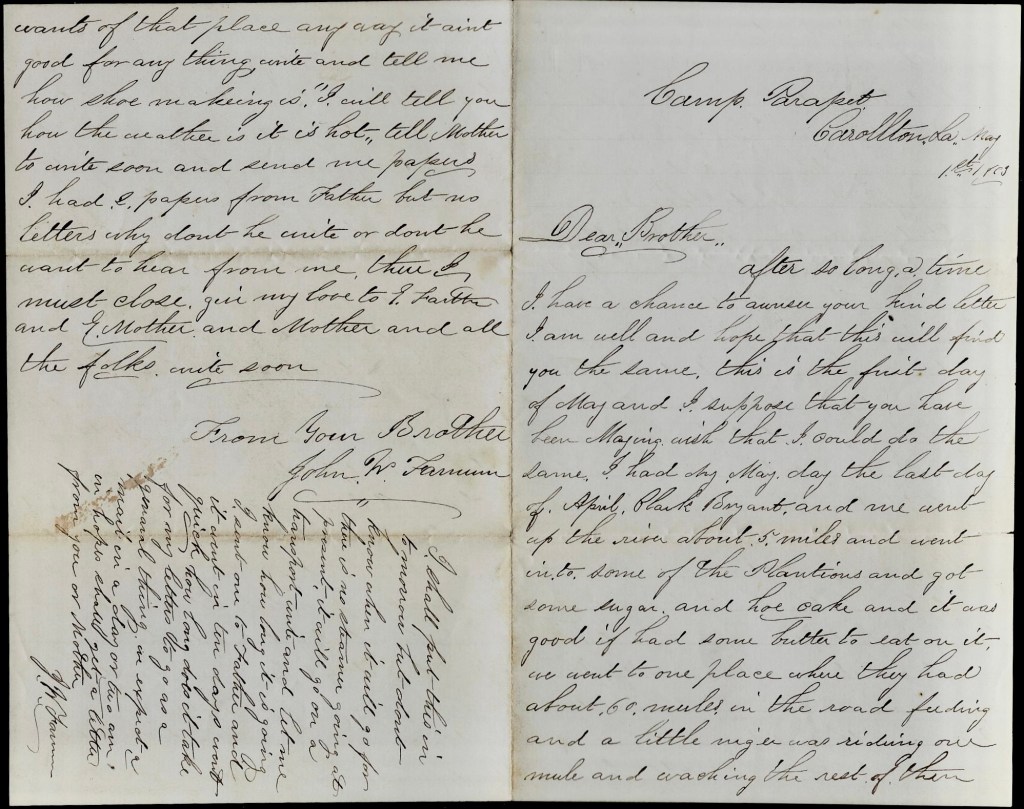 Camp. Parapet
Carollton, La. May
1st 1863
Dear,, Brother,,
after so long, a, time
I have a chance to aunser your kind letter
I am well and hope that this will find
you the same, this is the first day
of May and I suppose that you have
been Maying wish that I could do the
same, I had my May day the last day
of April, Clark Bryant, and me went
up the river about 5 miles and went
in to some of the Plantions and got
some sugar and hoe cake and it was
good if had some butter to eat on it,
we went to one place where they had
about, 60, mules in the road feeding
and a little niger was riding one
mule and waching the rest of them
wants of that place any way it aint
good for any thing, write and tell me
how shoe makeing is," I will tell you
how the weather is it is hot,, tell Mother
to write soon and send me papers
I had 2, papers from Father but no
letters why dont he write or dont he
want to hear from me, there I
must close, give my love to G. Father
and G. Mother and Mother and all
the folks, write soon
From Your Brother
John, W. Farnum
I shall put this in
tomorrow but dont
know when it will go for
there is no steamer going at
present, it will go on a
transport write and let me
know how long it is going
I sent one to Father and
it went in ten days went
quick, how long does it take
for my letters to go as a
general thing, we expect a
mail in a day or two am
in hopes shall get a letter
from you or Mother
J. W. Farnum